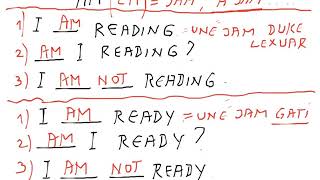 1) I AM READING = UNE JAM DUKE LEXUAR
2) AM I READING ?
3) I AM NOT READING
1) I AM READY = UNE JAM GATI
2) AM I READY ?
3) I AM NOT READY